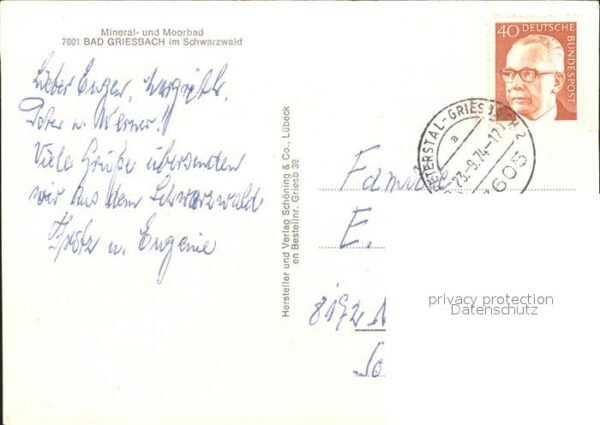 Mineral- und Moorbad
7601 BAD GRIESBACH im Schwarzwald
Lieber Eugen, Margith,
Peter u. Werner!
Viele Grüße übersenden
wir aus dem Schwarzwald
u. Eugenie
Hersteller und Verlag Schöning & Co., Lübeck
en Bestellnr. Griesb 39
40 DEUTSCHE BUNDESPOST
PETERSTAL-GRIESBACH 2
a
23.-9.74-17
7605
Familie
E.
8172
privacy protection
Datenschutz